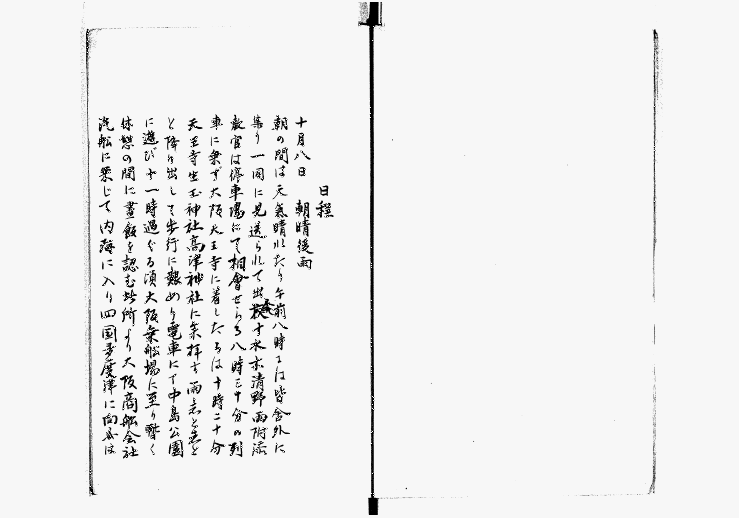 日程
十月八日　朝晴後雨
朝の間は天氣晴れたり午前八時には皆舍外に
集り一同に見送られて出發す水京清野両附添
教官は停車場にて相會せらる八時三十分の列
車に乗ず大阪天王寺に着したるは十時二十分
天王寺生玉神社高津神社に参拝す雨
と降り出し歩行に艱めり電車にて中島公園
に遊び十一時過ぐる頃大阪乗船場に至り暫く
休憩の間に晝飯を認む此所より大阪商船会社
汽船に乗じて内海に入り四國多度津に向ふは